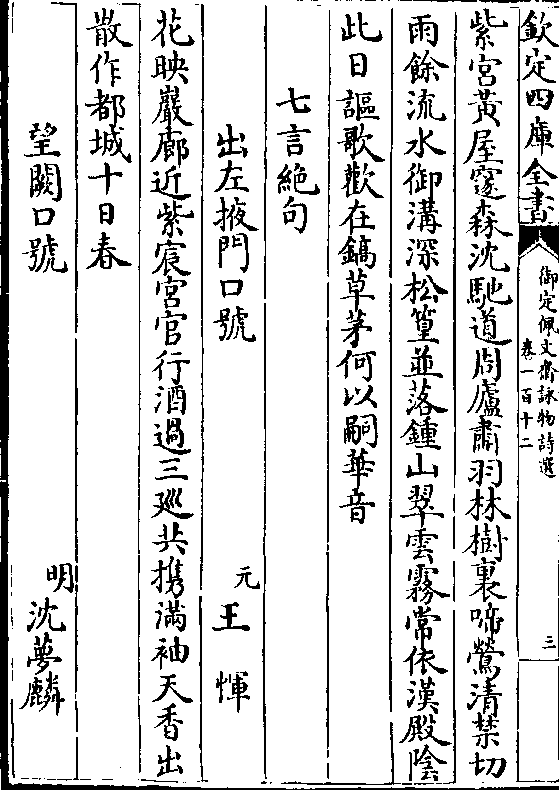 欽定四庫全書
御定佩文齋詠物詩選
卷一百十二
三
紫宮黃屋窱森沈馳道周廬肅羽林樹裏啼鶯清禁切
雨餘流水御溝深松篁並落鍾山翠雲霧常依漢殿陰
此日謳歌歡在鎬草茅何以嗣華音
七言絶句
出左掖門口號
元王惲
花映嚴廊近紫宸宮官行酒過三廵共携滿袖天香出
散作都城十日春
望闕口號
明沈夢麟